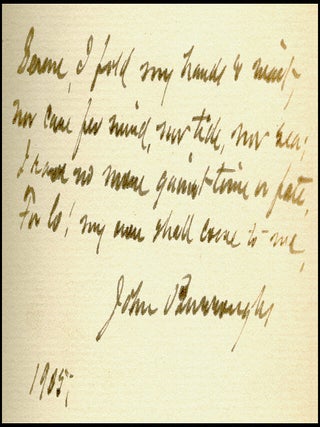 Serene, I fold my hands & wait,
nor care for wind, nor tide, nor sea;
I rave no more gainst time or fate,
For lo! my own shall come to me,
John Burroughs
1905;